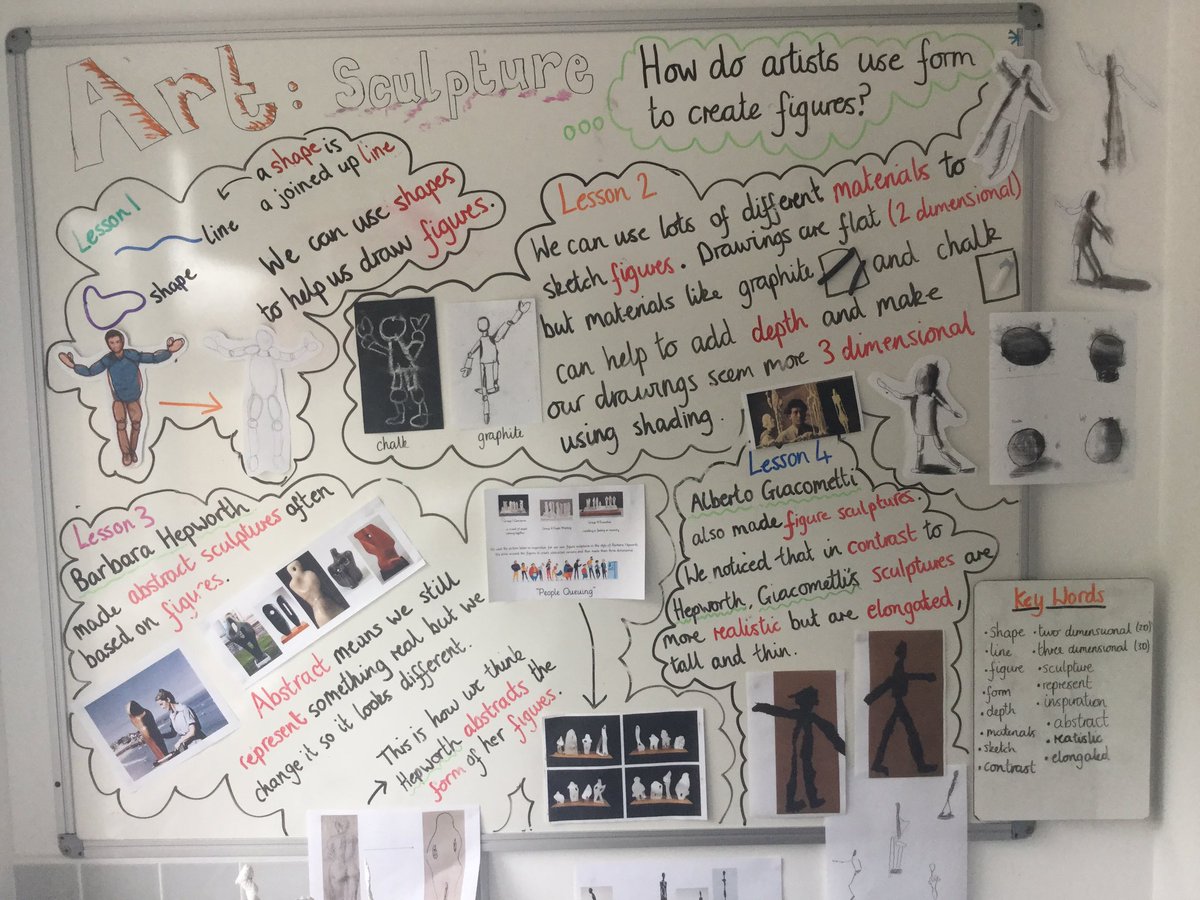 Art: Sculpture
How do artists use form
to create figures?
Lesson 1
a shape is
a joined up line
line
shape
We can use shapes
to help us draw figures.
Lesson 2
We can use lots of different materials to
sketch figures. Drawings are flat (2 dimensional)
but materials like graphite and chalk
can help to add depth and make
our drawings seem more 3 dimensional
using shading.
chalk
graphite
Lesson 3
Barbara Hepworth
made abstract sculptures often
based on figures.
Abstract means we still
represent something real but we
change it so it looks different.
This is how we think
Hepworth abstracts the
form of her figures.
"People Queuing"
Lesson 4
Alberto Giacometti
also made figure sculptures.
We noticed that in contrast to
Hepworth, Giacometti's sculptures are
more realistic but are elongated,
tall and thin.
Key Words
• shape
• line
• figure
• form
• depth
• materials
• sketch
• contrast
• two dimensional (2D)
• three dimensional (3D)
• sculpture
• represent
• inspiration
• abstract
• realistic
• elongated